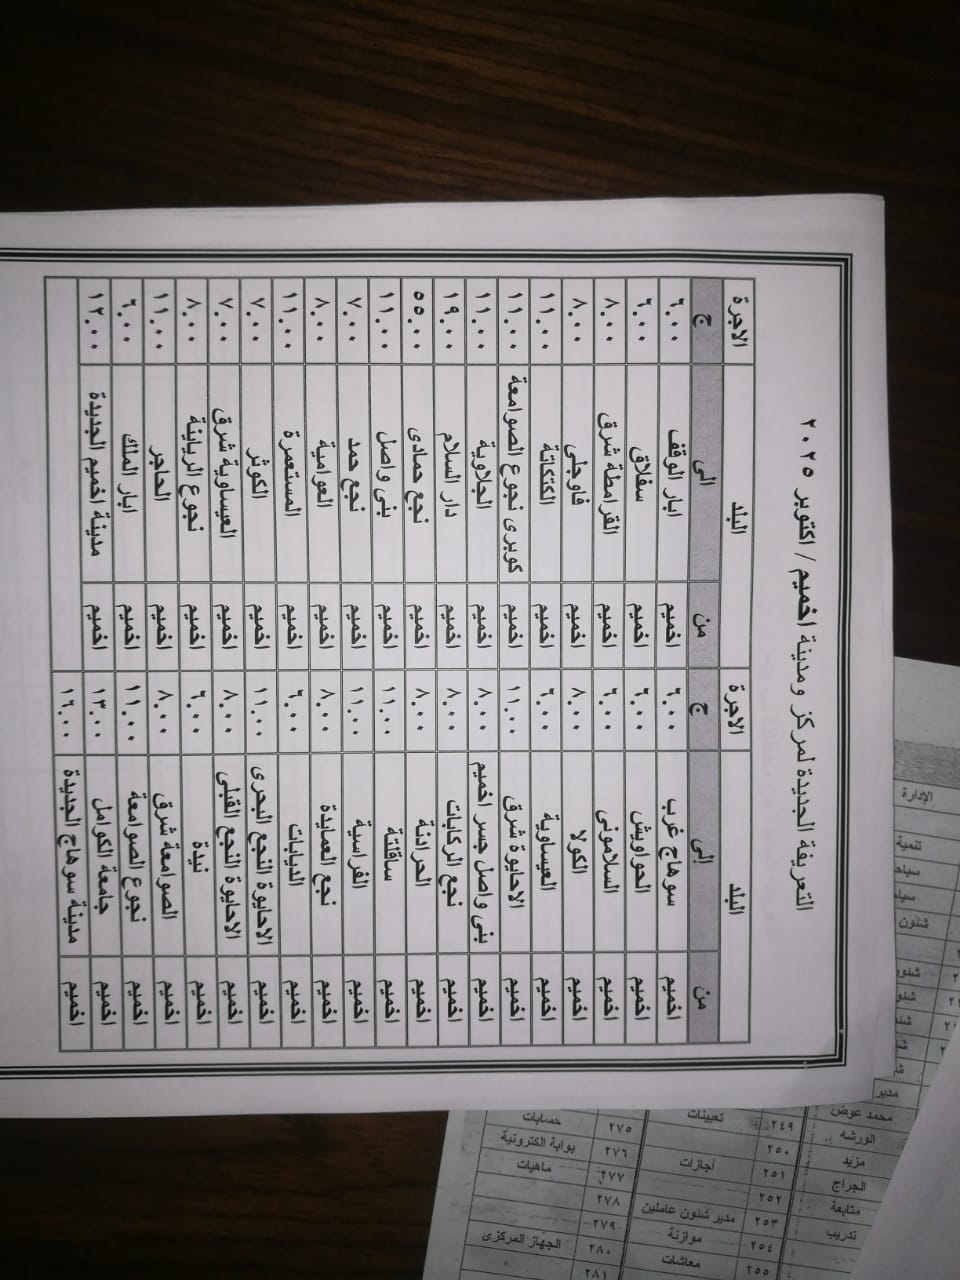 التعريفة الجديدة لمركز ومدينة اخميم / اكتوبر ٢٠٢٥
البلد الاجرة البلد الاجرة
من الى ج من الى ج
اخميم سوهاج غرب ٦.٠٠ اخميم ابار الوقف ٦.٠٠
اخميم الحواويش ٦.٠٠ اخميم سفلاق ٦.٠٠
اخميم السلامونى ٦.٠٠ اخميم القرامطة شرق ٨.٠٠
اخميم الكولا ٨.٠٠ اخميم فاوجلى ٨.٠٠
اخميم العيساوية ٦.٠٠ اخميم الكتكاتة ١١.٠٠
اخميم الاحايوة شرق ١١.٠٠ اخميم كوبرى نجوع الصوامعة ١١.٠٠
اخميم بنى واصل جسر اخميم ٨.٠٠ اخميم الجلاوية ١١.٠٠
اخميم نجع الركابات ٨.٠٠ اخميم دار السلام ١٩.٠٠
اخميم الحرادنة ٨.٠٠ اخميم نجع حمادى ٥٥.٠٠
اخميم ساقلتة ١١.٠٠ اخميم بنى واصل ١١.٠٠
اخميم الفراسية ١١.٠٠ اخميم نجع حمد ٧.٠٠
اخميم نجع العمايدة ٨.٠٠ اخميم العوامية ٨.٠٠
اخميم الديابات ٦.٠٠ اخميم المستعمرة ١١.٠٠
اخميم الاحايوة النجع البحرى ١١.٠٠ اخميم الكوثر ٧.٠٠
اخميم الاحايوة النجع القبلى ٨.٠٠ اخميم العيساوية شرق ٧.٠٠
اخميم نيدة ٦.٠٠ اخميم نجوع الرياينة ٨.٠٠
اخميم الصوامعة شرق ٨.٠٠ اخميم الحاجر ١١.٠٠
اخميم نجوع الصوامعة ١١.٠٠ اخميم ابار الملك ٦.٠٠
اخميم جامعة الكوامل ١٣.٠٠ اخميم مدينة اخميم الجديدة ١٢.٠٠
اخميم مدينة سوهاج الجديدة ١٦.٠٠
الإدارة
تنمية
شئون
مدير
محمد عوض ٢٤٩ تعيينات ٢٧٥ حسابات
الورشه ٢٥٠ ٢٧٦ بوابة الكترونية
مزيد ٢٥١ اجازات ٢٧٧ ماهيات
الجراج ٢٥٢ ٢٧٨
متابعة ٢٥٣ مدير شئون عاملين ٢٧٩
تدريب ٢٥٤ موازنة ٢٨٠ الجهاز المركزى
٢٥٥ معاشات ٢٨١